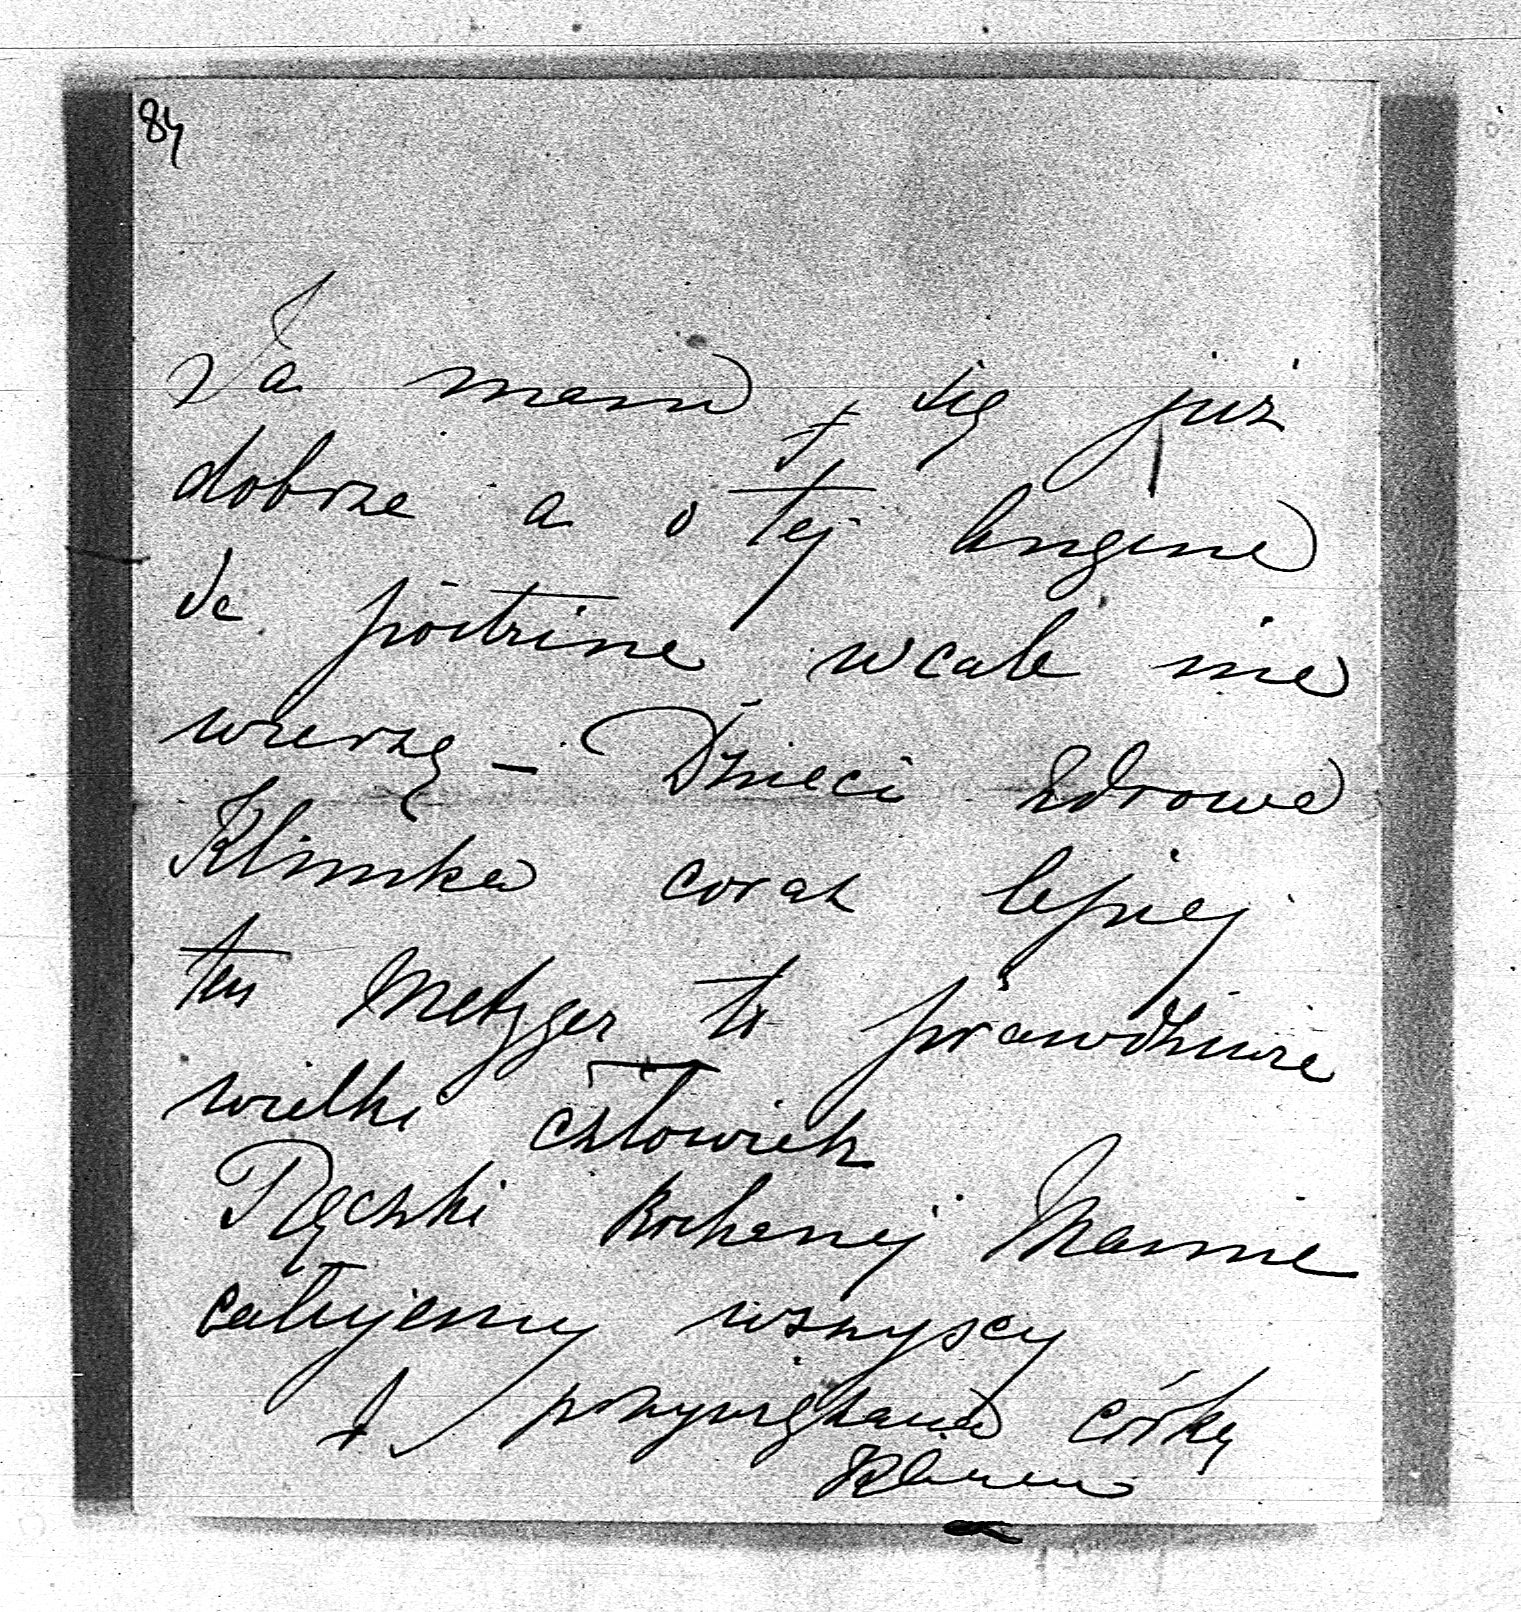 84
Ja mam się już
dobrze a o tej Angine
de poitrine wcale nie
wierzę – Dzieci zdrowe
Klimka coraz lepiej
ten Metzger to prawdziwie
wielki człowiek
Rączki kochanej Mamie
całujemy wszyscy
przywiązana córka